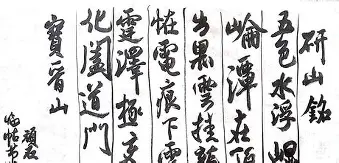 研山銘
五色水浮崐
崘潭在頂
出黑雲挂龍
怪電痕下震
霆澤極變
化闔道門
寶晉山